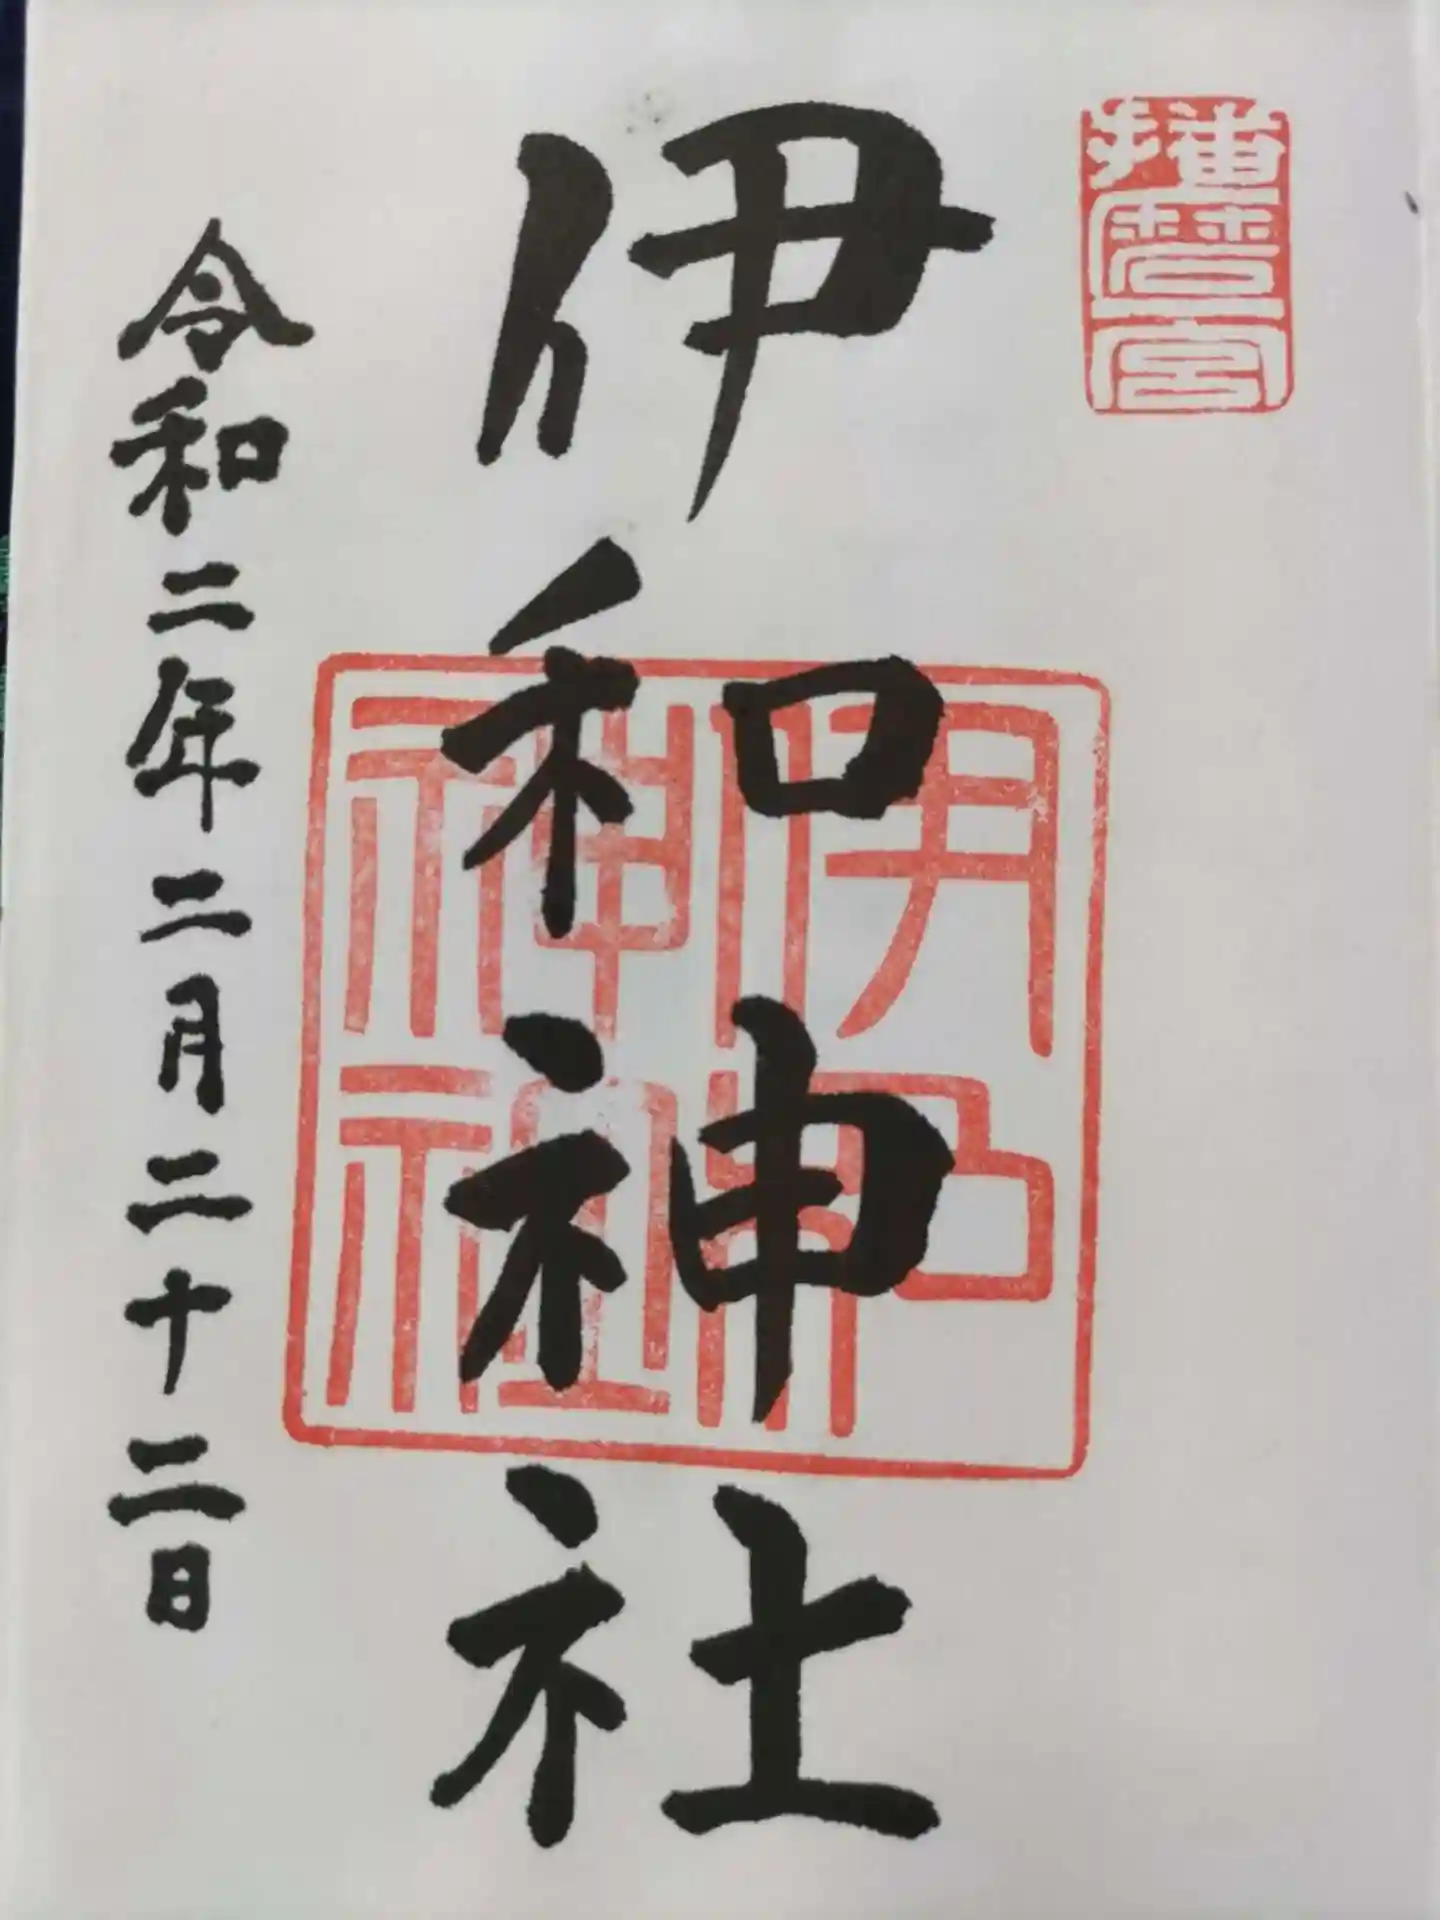 播磨一宮
伊和神社
伊和
神社
令和二年二月二十二日